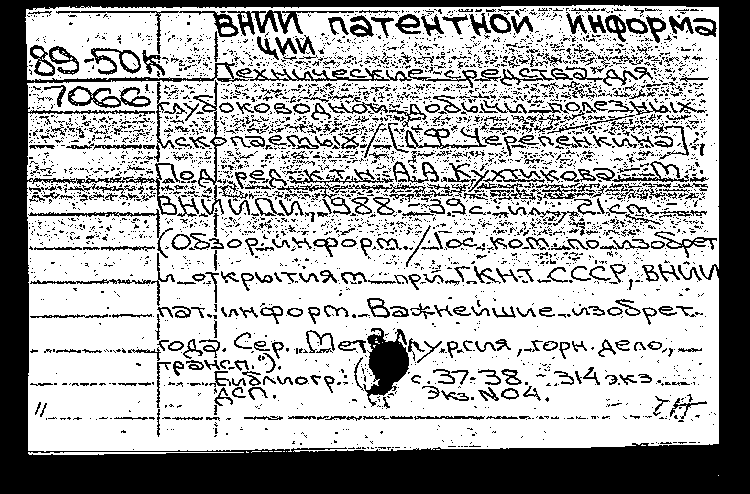 ВНИИ патентной информа
ции.
89-50к
Технические средства для
7066
глубоководной добычи полезных
ископаемых / [Л.Ф. Черепенкина];
Под ред. к.т.н. А.А. Кухтикова. - М.:
ВНИИПИ, 1988. - 39 с.: ил.; 21 см. -
(Обзор. информ. / Гос. ком. по изобрет
и открытиям при ГКНТ СССР, ВНИИ
пат. информ. Важнейшие изобрет.
года. Сер. "Металлургия, горн. дело,
трансп.").
Библиогр.: с. 37-38. - 314 экз.
ДСП. Экз. №04.